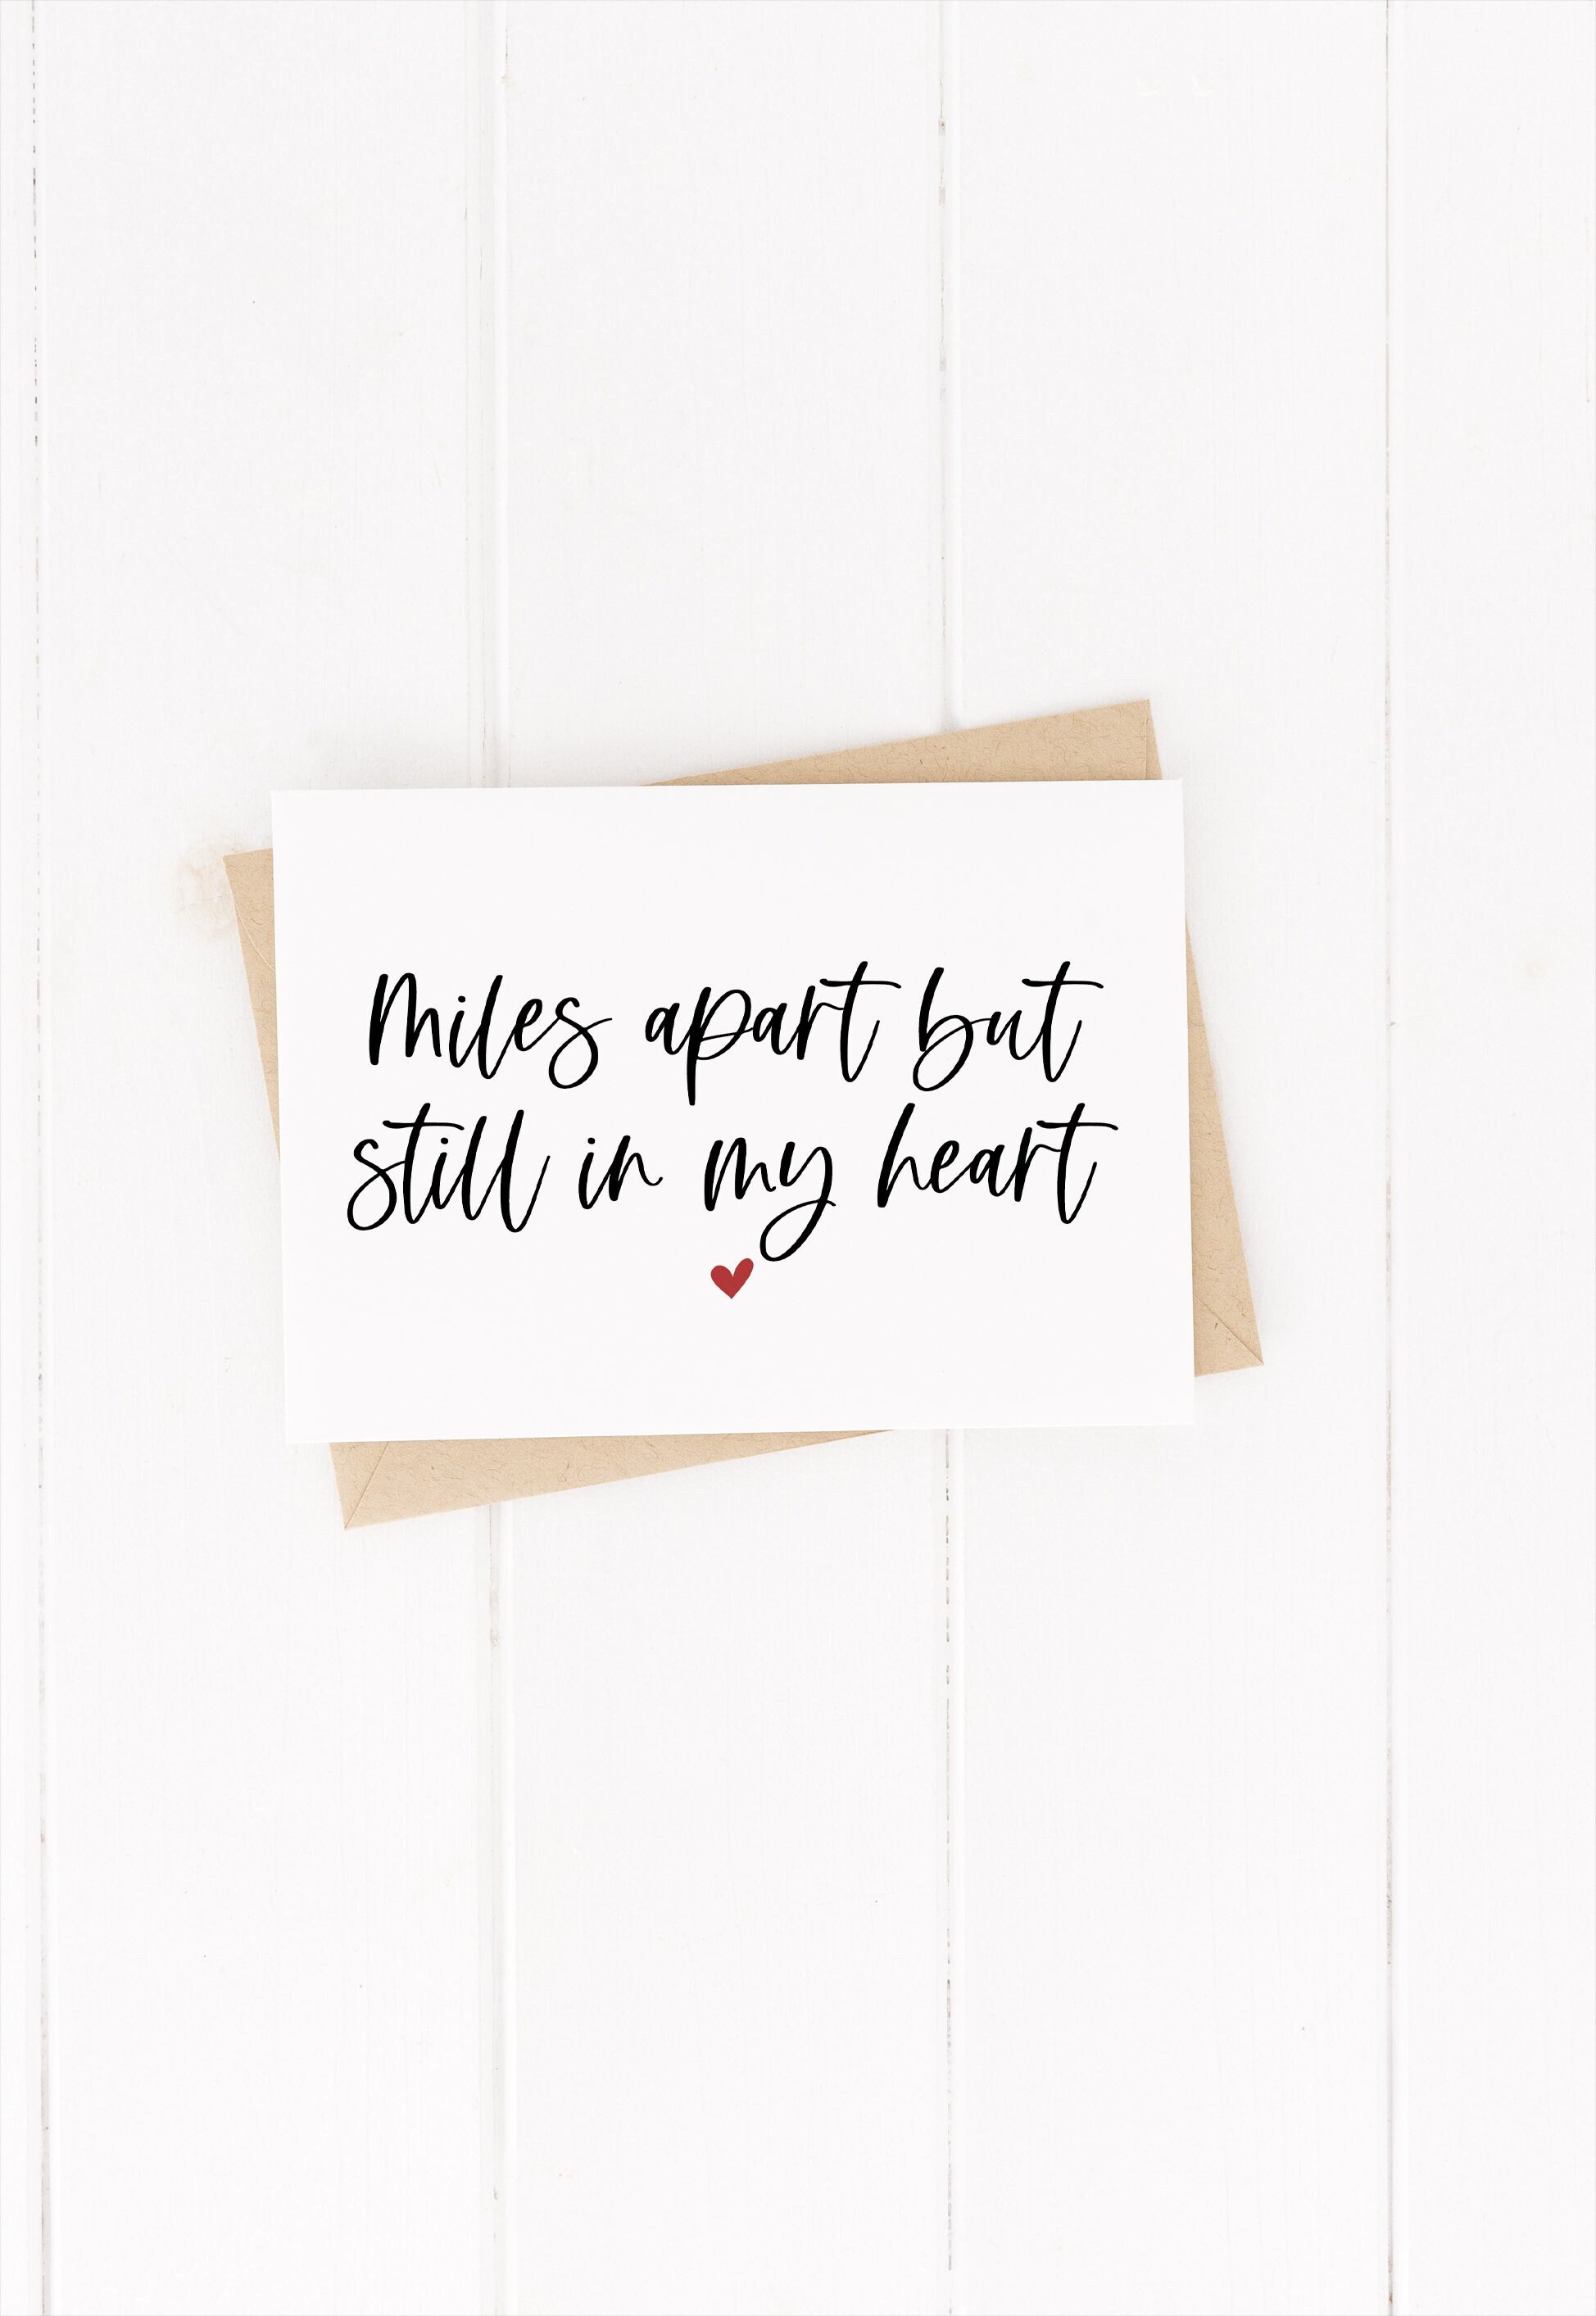 Miles apart but
still in my heart